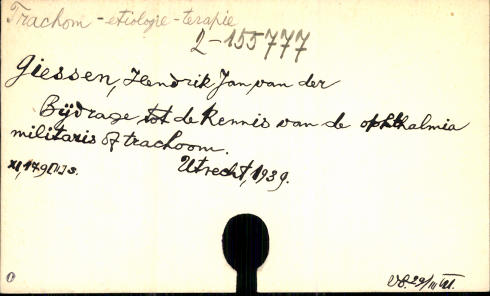 Trachom - etiologie - terapie
2-155777
Giessen, Hendrik Jan van der
Bijdrage tot de Kennis van de ophthalmia
militaris of trachoom.
XI, 179 [1] s. Utrecht, 1939.